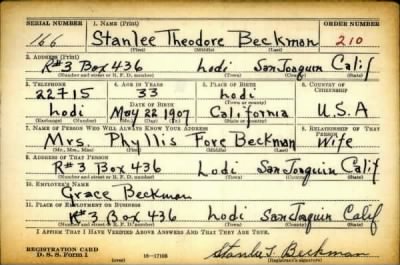 SERIAL NUMBER 1. NAME (Print) ORDER NUMBER
166 Stanlee Theodore Beckman 210
(First) (Middle) (Last)
2. ADDRESS (Print)
R#3 Box 436 Lodi San Joaquin Calif
(Number and street or R. F. D. number) (Town) (County) (State)
3. TELEPHONE 4. AGE IN YEARS 5. PLACE OF BIRTH 6. COUNTRY OF CITIZENSHIP
22715 33 Lodi
DATE OF BIRTH (Town or county)
Lodi May 22 1907 California U.S.A
(Exchange) (Number) (Mo.) (Day) (Yr.) (State or country)
7. NAME OF PERSON WHO WILL ALWAYS KNOW YOUR ADDRESS 8. RELATIONSHIP OF THAT PERSON
Mrs. Phyllis Fore Beckman Wife
(Mr., Mrs., Miss) (First) (Middle) (Last)
9. ADDRESS OF THAT PERSON
R#3 Box 436 Lodi San Joaquin Calif
(Number and street or R. F. D. number) (Town) (County) (State)
10. EMPLOYER'S NAME
Grace Beckman
11. PLACE OF EMPLOYMENT OR BUSINESS
R#3 Box 436 Lodi San Joaquin Calif
(Number and street or R. F. D. number) (Town) (County) (State)
I AFFIRM THAT I HAVE VERIFIED ABOVE ANSWERS AND THAT THEY ARE TRUE.
REGISTRATION CARD
D. S. S. Form 1 16—17105 Stanlee T. Beckman
(Registrant's signature)